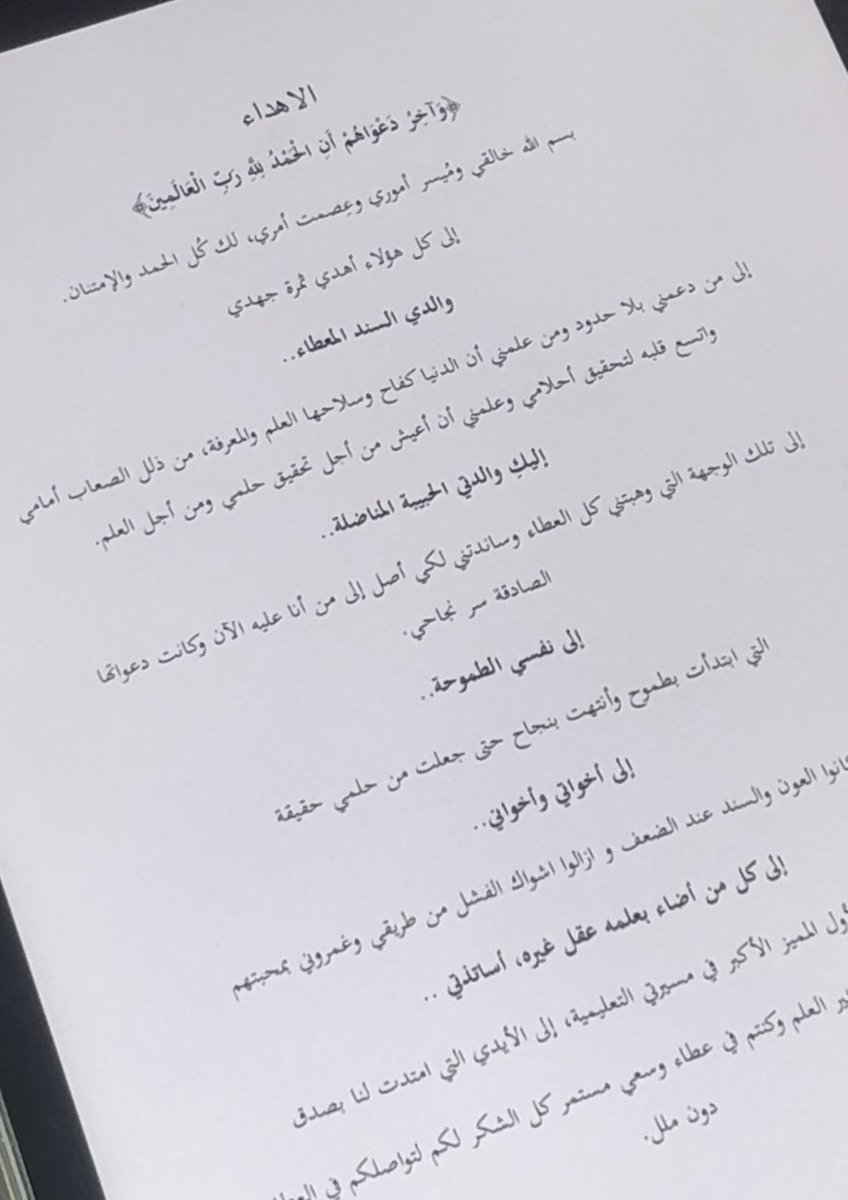 الاهداء
﴿وَآخِرُ دَعْوَاهُمْ أَنِ الْحَمْدُ لِلَّهِ رَبِّ الْعَالَمِينَ﴾
بسم الله خالقي ومُيسر أموري وعِصمت أمري، لك كُل الحمد والإمتنان.
إلى كل هؤلاء أهدي ثمرة جهدي
والدي السند المعطاء..
إلى من دعمني بلا حدود ومن علمني أن الدنيا كفاح وسلاحها العلم والمعرفة، من ذلل الصعاب أمامي
واتسع قلبه لتحقيق أحلامي وعلمني أن أعيش من أجل تحقيق حلمي ومن أجل العلم.
إليكِ والدتي الحبيبة المناضلة..
إلى تلك الوجهة التي وهبتني كل العطاء وساندتني لكي أصل إلى من أنا عليه الآن وكانت دعواتها
الصادقة سر نجاحي.
إلى نفسي الطموحة..
التي ابتدأت بطموح وأنتهت بنجاح حتى جعلت من حلمي حقيقة
إلى أخواتي وأخواني..
كانوا العون والسند عند الضعف و ازالوا اشواك الفشل من طريقي وغمروني بمحبتهم
إلى كل من أضاء بعلمه عقل غيره، أساتذتي ..
المميز الأكبر في مسيرتي التعليمية، إلى الأيدي التي امتدت لنا بصدق
العلم وكنتم في عطاء وسعي مستمر كل الشكر لكم لتواصلكم في
دون ملل.